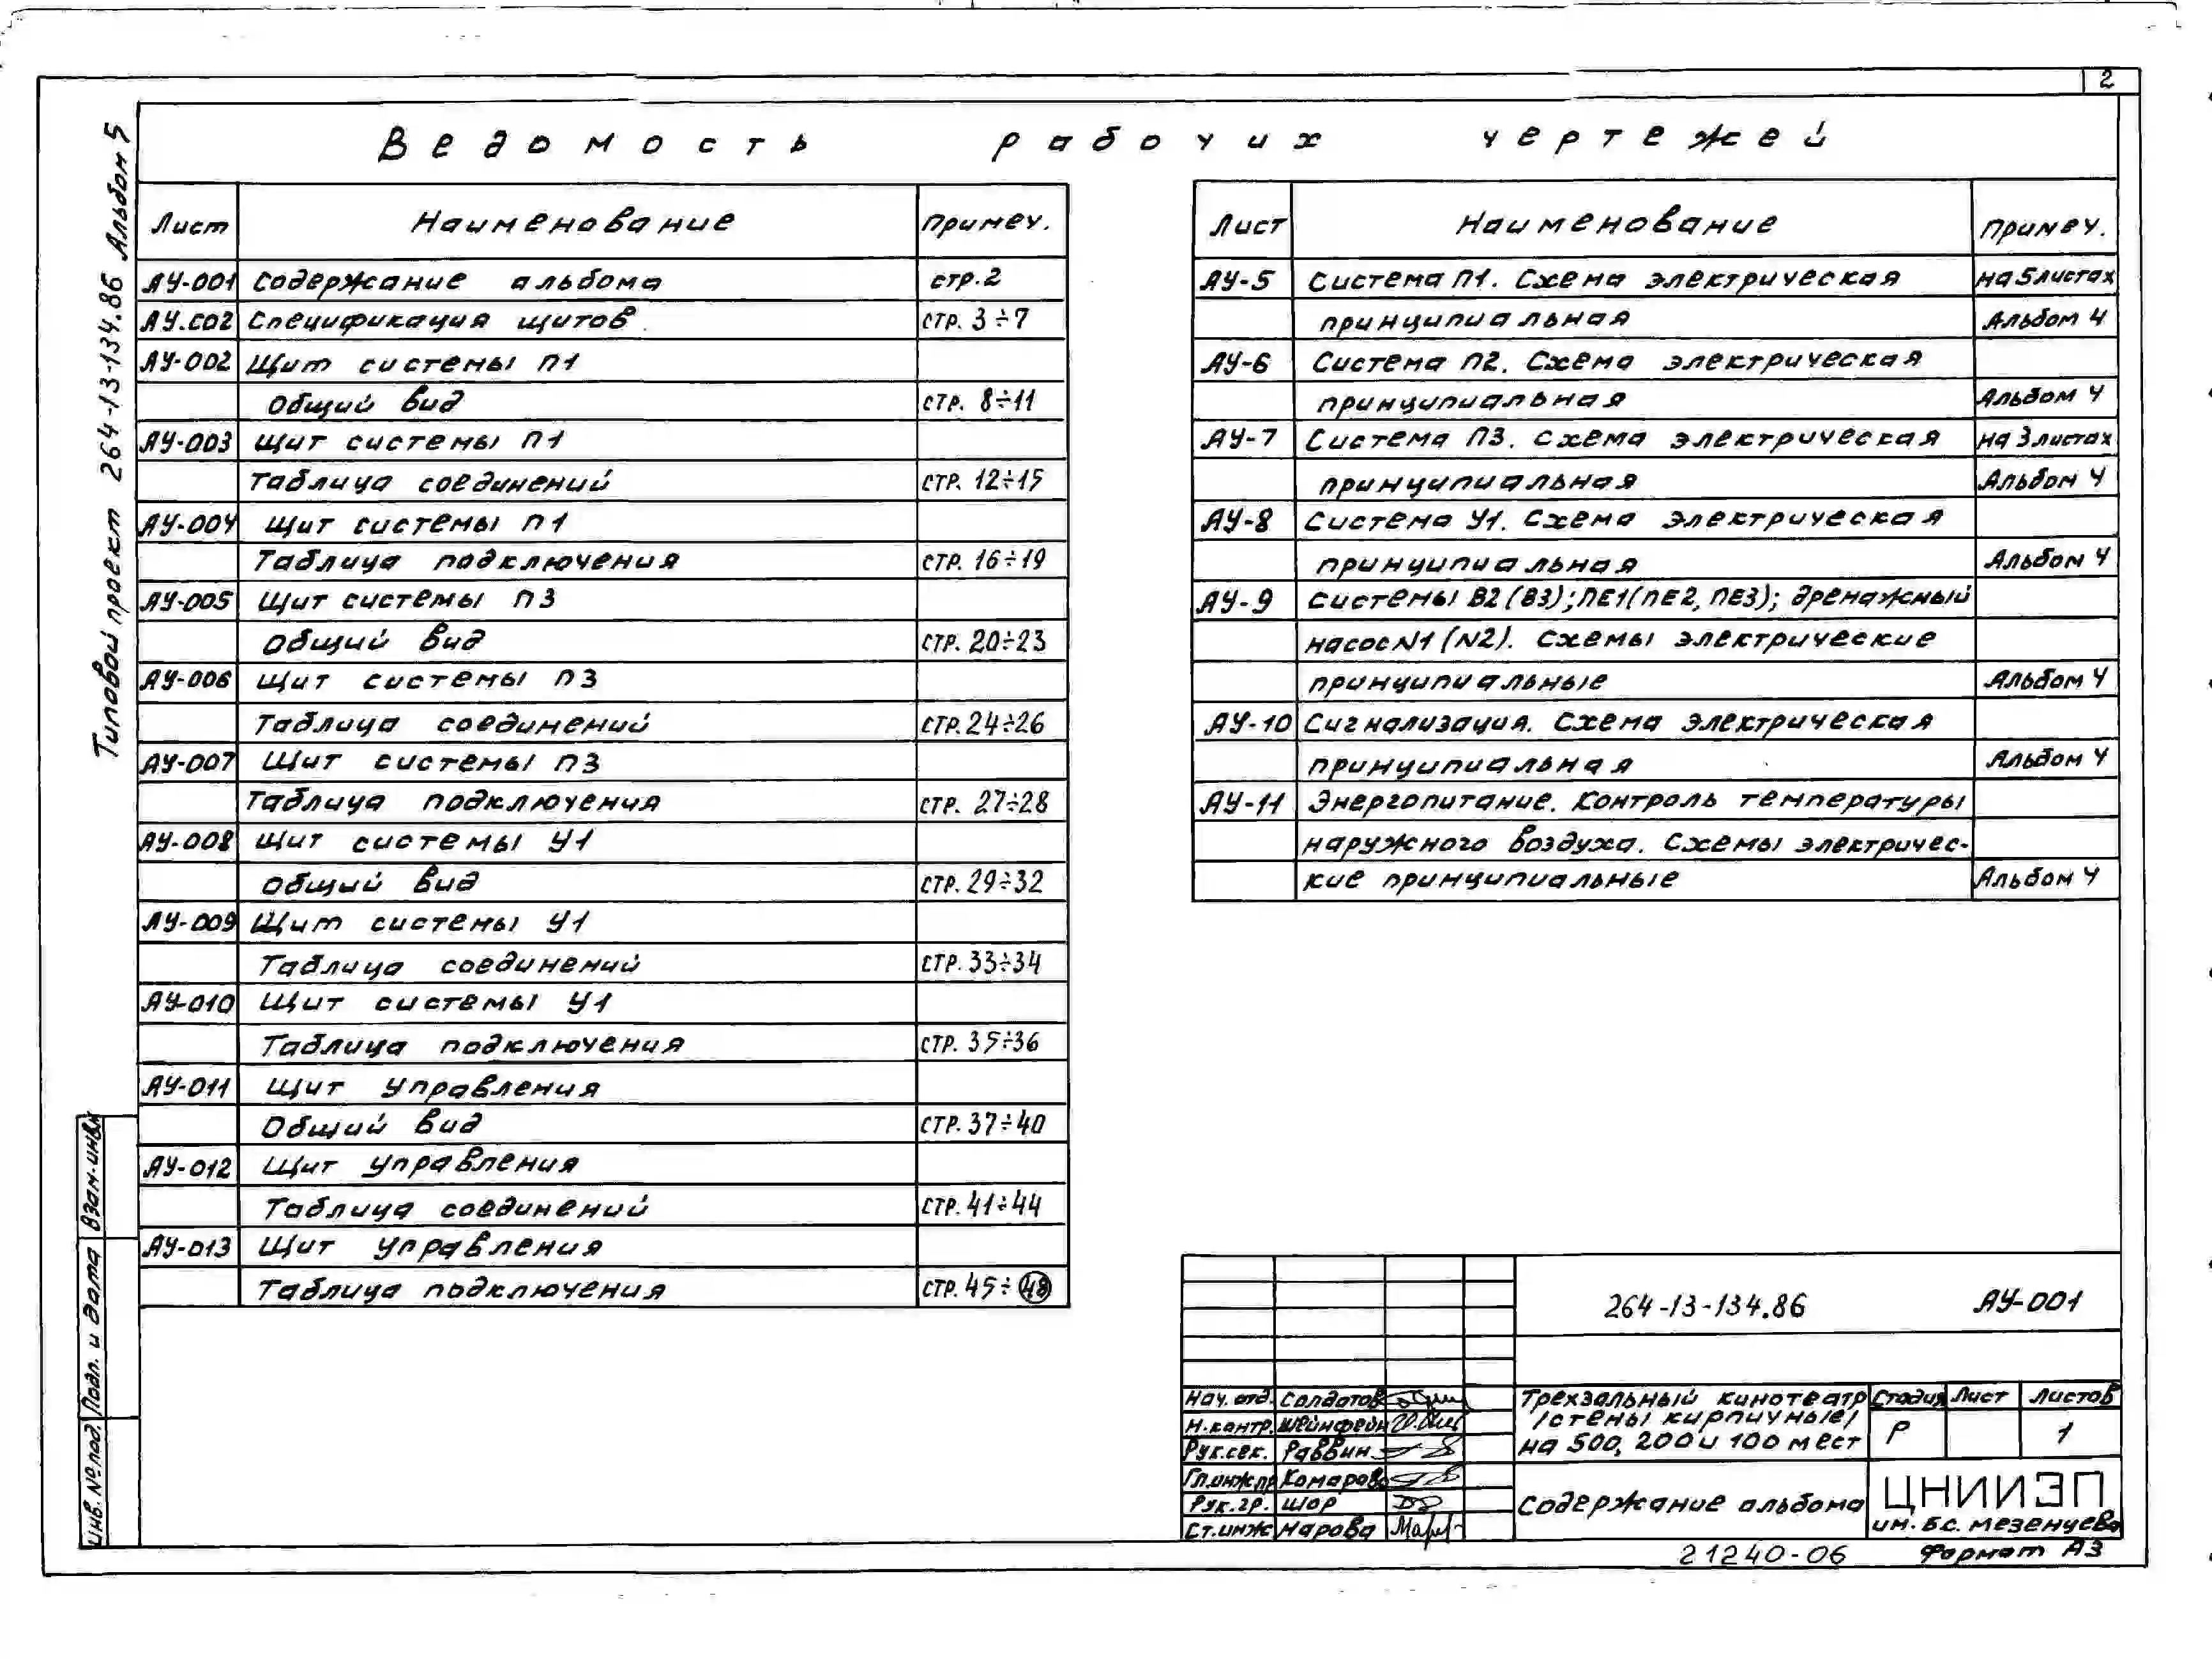 2
Типовой проект 264-13-134.86 Альбом 5
Ведомость рабочих чертежей
Лист Наименование Примеч.
АУ-001 Содержание альбома стр.2
АУ.СО2 Спецификация щитов стр. 3÷7
АУ-002 Щит системы П1
Общий вид стр. 8÷11
АУ-003 Щит системы П1
Таблица соединений стр. 12÷15
АУ-004 Щит системы П1
Таблица подключения стр. 16÷19
АУ-005 Щит системы П3
Общий вид стр. 20÷23
АУ-006 Щит системы П3
Таблица соединений стр. 24÷26
АУ-007 Щит системы П3
Таблица подключения стр. 27÷28
АУ-008 Щит системы У1
Общий вид стр. 29÷32
АУ-009 Щит системы У1
Таблица соединений стр. 33÷34
АУ-010 Щит системы У1
Таблица подключения стр. 35÷36
АУ-011 Щит управления
Общий вид стр. 37÷40
АУ-012 Щит управления
Таблица соединений стр. 41÷44
АУ-013 Щит управления
Таблица подключения стр. 45÷48
Лист Наименование Примеч.
АУ-5 Система П1. Схема электрическая на 5 листах
принципиальная Альбом 4
АУ-6 Система П2. Схема электрическая
принципиальная Альбом 4
АУ-7 Система П3. Схема электрическая на 3 листах
принципиальная Альбом 4
АУ-8 Система У1. Схема электрическая
принципиальная Альбом 4
АУ-9 Системы В2 (В3); ПЕ1 (ПЕ2, ПЕ3); дренажный
насос N1 (N2). Схемы электрические
принципиальные Альбом 4
АУ-10 Сигнализация. Схема электрическая
принципиальная Альбом 4
АУ-11 Энергопитание. Контроль температуры
наружного воздуха. Схемы электричес-
кие принципиальные Альбом 4
Взам.инв.№
Подп. и дата
Инв. № под.
264-13-134.86 АУ-001
Нач. отд. Солдатов
Н. контр. Шейнфейн
Рук. сек. Раввин
Гл.инж.пр Комарова
Рук. гр. Шор
Ст. инж Нарова
Трехзальный кинотеатр
/стены кирпичные/
на 500, 200 и 100 мест
Стадия Лист Листов
Р 1
Содержание альбома
ЦНИИЭП
им. Б.С. Мезенцева
21240-06 Формат А3